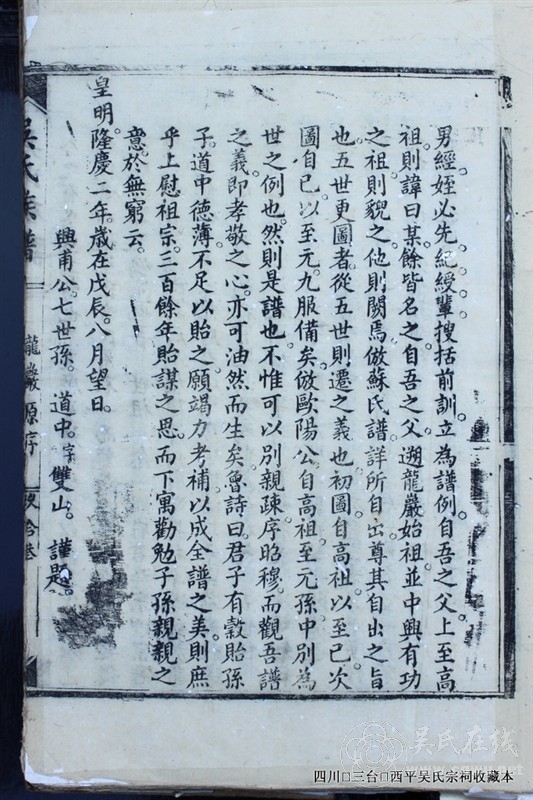 男經姪必先紀綬輩搜括前訓立為譜例自吾之父上至高
祖則諱曰某餘皆名之自吾之父遡龍巖始祖並中興有功
之祖則貌之他則闕焉倣蘇氏譜詳所自出尊其自出之旨
也五世更圖者從五世則遷之義也初圖自高祖以至已次
圖自已以至元九服備矣倣歐陽公自高祖至元孫中別為
世之例也然則是譜也不惟可以別親疎序昭穆而觀吾譜
之義即孝敬之心亦可油然而生矣魯詩曰君子有穀貽孫
子道中德薄不足以貽之願竭力考補以成全譜之美則庶
乎上慰祖宗三百餘年貽謀之思而下寓勸勉子孫親親之
意於無窮云
皇明隆慶二年歲在戊辰八月望日
興甫公七世孫道中字雙山謹題
吳氏族譜
龍巖原序
四川 三台 西平吴氏宗祠收藏本
吴氏在线